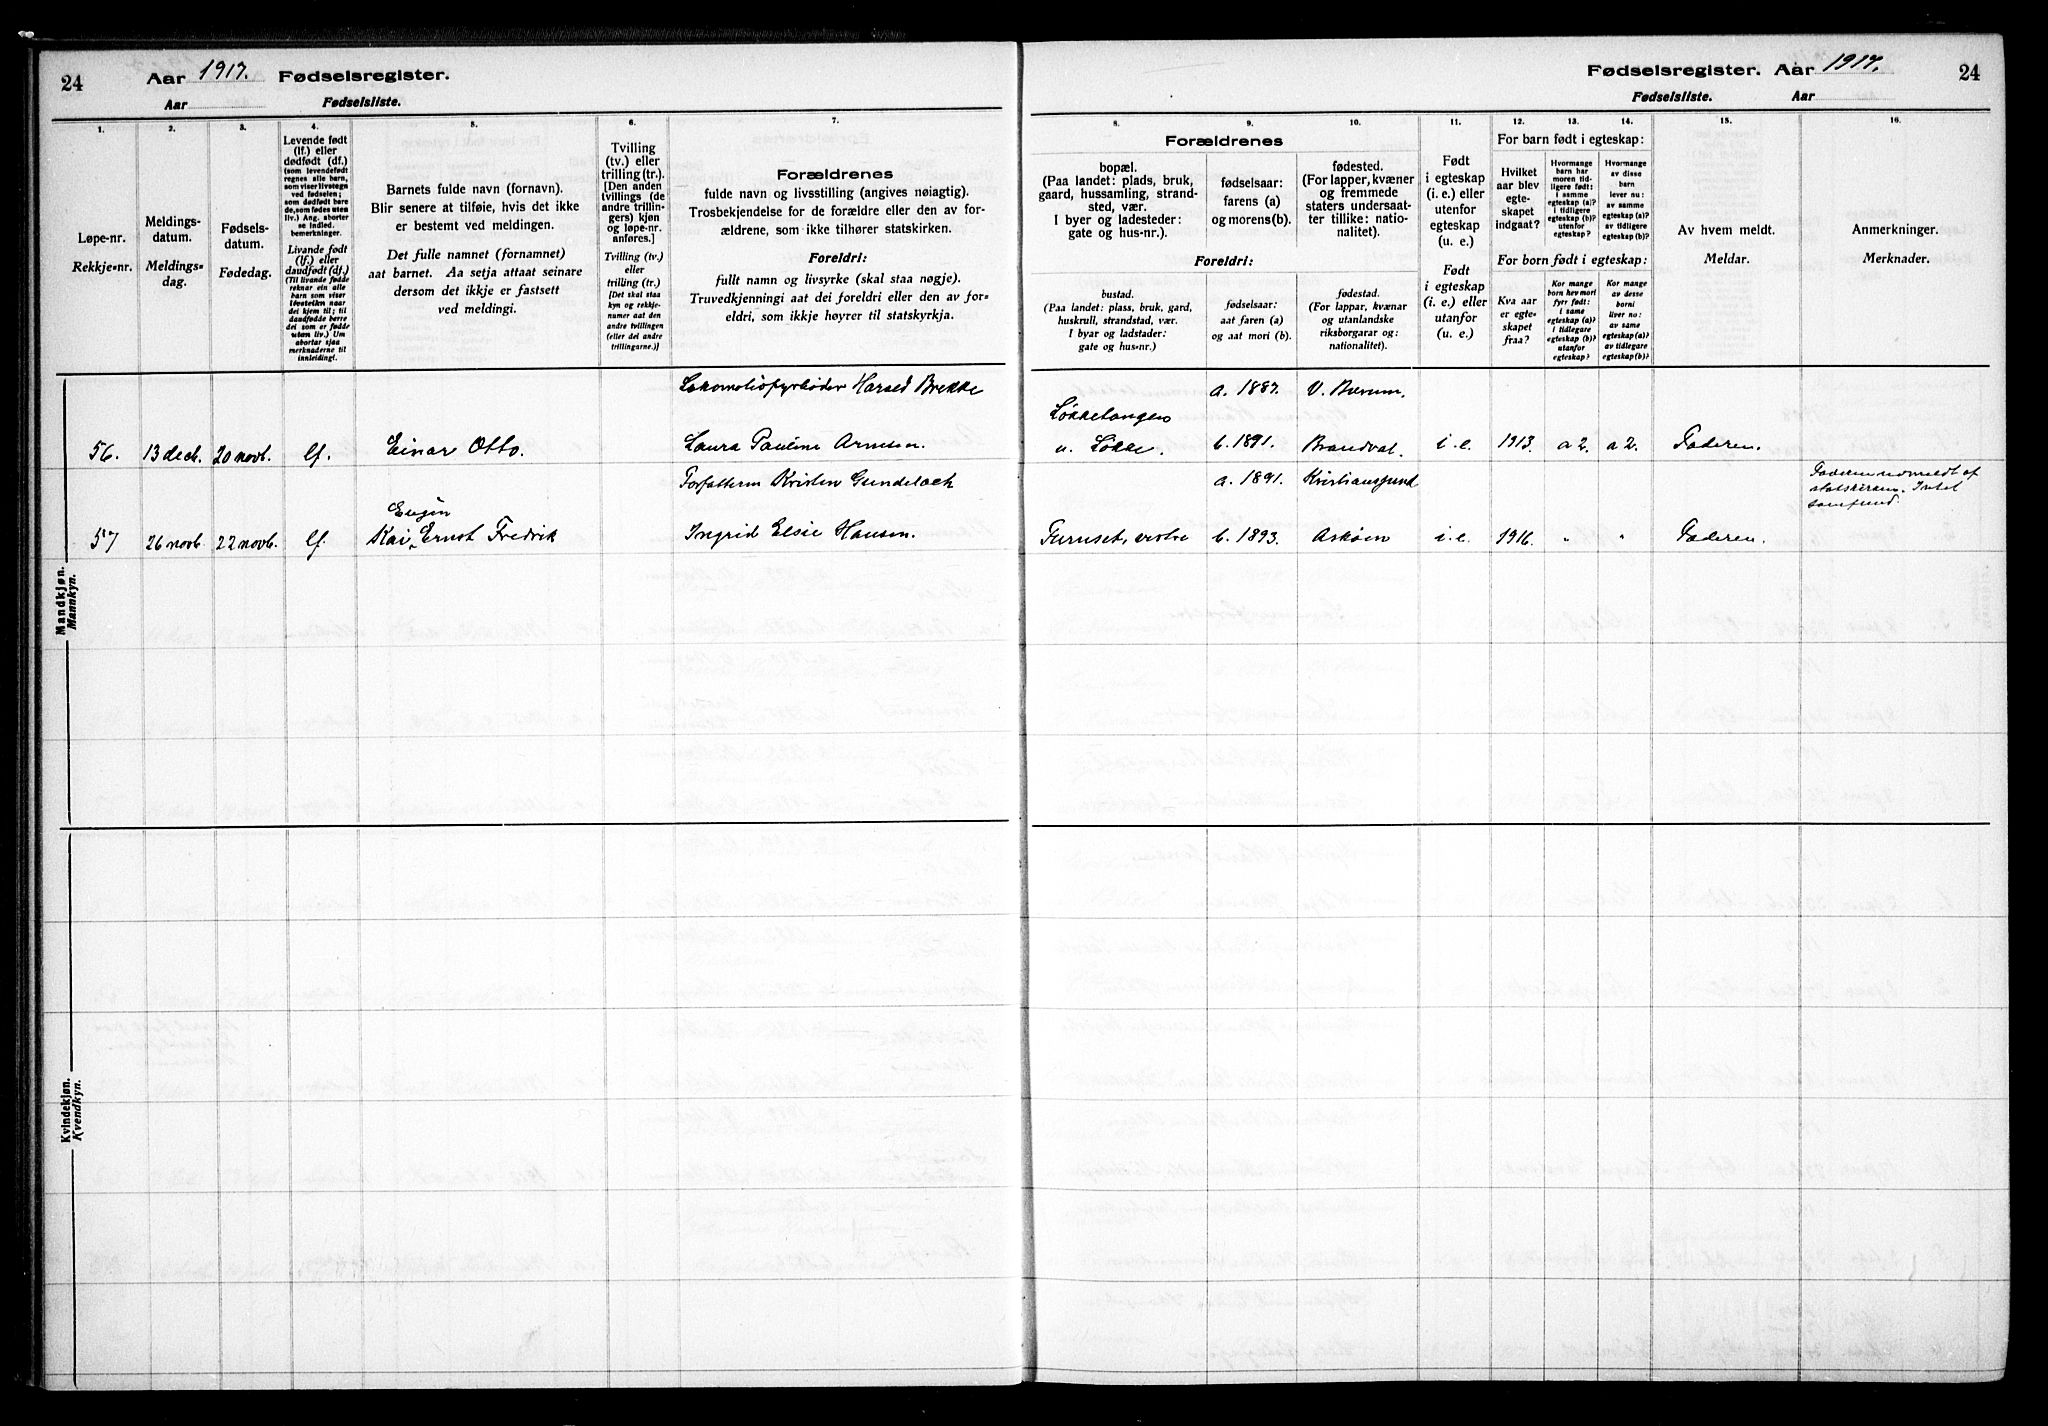 24
Aar 1917. Fødselsregister.
Aar Fødselsliste.
1.
2.
3.
4.
5.
6.
7.
Løpe-nr.
Rekkje-nr.
Meldings-
datum.
Meldings-
dag.
Fødsels-
datum.
Fødedag.
Levende født
(lf.) eller
dødfødt (df.)
(som levendefødt
regnes alle barn,
som viser livstegn
ved fødselen;
som dødfødt bare
de, som fødes uten
liv.) Ang. aborter
se indled.
bemerkninger.
Livande født
(lf.) eller
daudfødt (df.)
(Til livande fødde
reknar ein alle
barn som viser
livsteikn naar
dei kjem til; til
daudfødde berre
dei som er fødde
utan liv.) Um
abortar sjaa
merknaderne til
innleiding!
Barnets fulde navn (fornavn).
Blir senere at tilføie, hvis det ikke
er bestemt ved meldingen.
Det fulle namnet (fornamnet)
aat barnet. Aa setja attaat seinare
dersom det ikkje er fastsett
ved meldingi.
Tvilling
(tv.) eller
trilling (tr.).
[Den anden
tvillings (de
andre trillin-
gers) kjøn
og løpe-nr.
anføres.]
Tvilling (tv.)
eller
trilling (tr.)
[Det skal staa
kyn og rekkje-
numer aat den
andre tvillingen
(eller dei andre
trillingarne.)]
Forældrenes
fulde navn og livsstilling (angives nøiagtig).
Trosbekjendelse for de forældre eller den av for-
ældrene, som ikke tilhører statskirken.
Foreldri:
fullt namn og livsyrke (skal staa nøgje).
Truvedkjenningi aat dei foreldri eller den av for-
eldri, som ikkje høyrer til statskyrkja.
Fødselsregister. Aar 1917.
24
Fødselsliste. Aar
8.
9.
10.
11.
12.
13.
14.
15.
16.
Forældrenes
bopæl.
(Paa landet: plads, bruk,
gaard, hussamling, strand-
sted, vær.
I byer og ladesteder:
gate og hus-nr.).
fødselsaar:
farens (a)
og morens (b).
fødested.
(For lapper, kvæner
og fremmede
staters undersaat-
ter tillike: natio-
nalitet).
Foreldri:
bustad.
(Paa landet: plass, bruk, gard,
huskrull, strandstad, vær.
I byar og ladstader:
gate og hus-nr.)
fødselsaar:
aat faren (a)
og aat mori (b).
fødestad.
(For lappar, kvænar
og utanlandske
riksborgarar og:
nationalitet).
Født
i egteskap
(i. e.) eller
utenfor
egteskap
(u. e.)
Født
i egteskap
(i. e.) eller
utanfor
(u. e.)
For barn født i egteskap:
Hvilket
aar blev
egte-
skapet
indgaat?
Hvormange
barn har
moren tid-
ligere født:
i samme
egteskap (a)?
i tidligere
egteskap (b)?
utenfor
egteskap?
Hvormange
av disse
barn
lever nu:
av samme
egteskap (a)?
av tidligere
egteskap (b)?
For born født i egteskap:
Kva aar
er egte-
skapet
fraa?
Kor mange
born hev mori
fyrr født:
i same
egteskap (a)?
i tidlegare
egteskap (b)?
utanfor
egteskap?
Kor mange
av desse
borni
liver no:
av same
egteskap (a)?
av tidlegare
egteskap (b)?
Av hvem meldt.
Meldar.
Anmerkninger.
Merknader.
Mandkjøn.
Mannkyn.
Lokomotivfyrbøder Harsed Brekke a. 1887. V. Bærum.
Løkketangen
56. 13 dec. 20 novb. lf. Einar Otto. Laura Pauline Arnesen. u. Løkke. b. 1891. Brandval i.e. 1913. a 2. a 2. Faderen.
Forfatteren Kristen Gundelach a. 1891. Kristiansund Faderen utmeldt af
statskirken. Intet
samfund.
Eugen
57 26 novb. 22 novb. lf. Kai, Ernst Fredrik Ingrid Elsie Hansen. Furuset, vestre b. 1893. Askøen i.e. 1916. " " Faderen.
Kvindekjøn.
Kvendkyn.